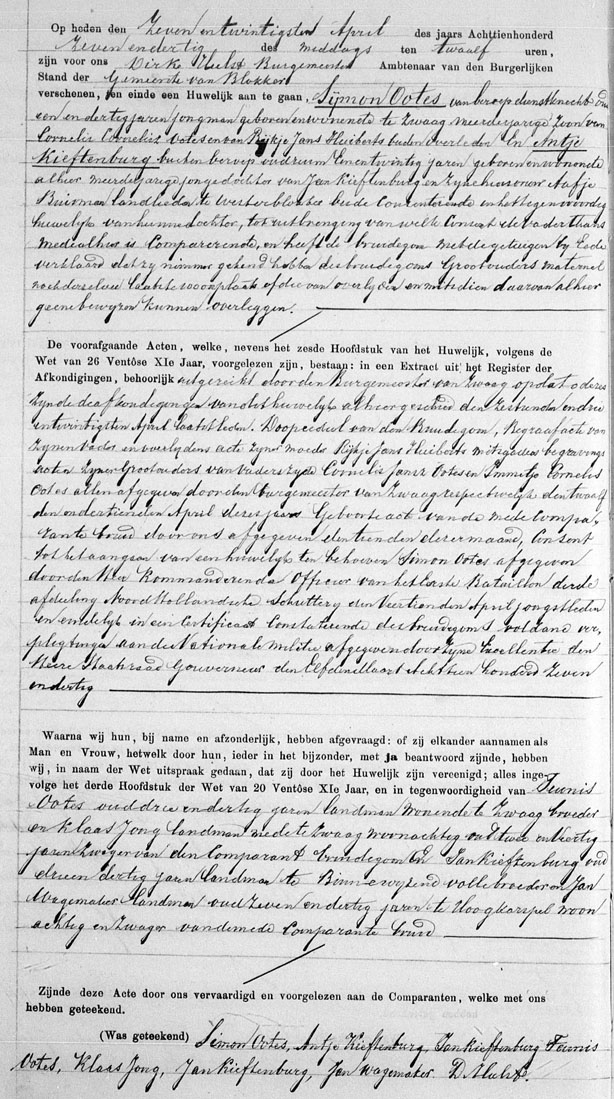 Op heden den Zeven en twintigsten April des jaars Achttienhonderd
Zeven en dertig des middags ten twaalf uren,
zijn voor ons Dirk Hulst Burgemeester Ambtenaar van den Burgerlijken
Stand der Gemeente van Blokker
verschenen, ten einde een Huwelijk aan te gaan, Sijmon Ootes van beroep dienstknecht oud
een en dertig jaren jongman geboren en wonende te Zwaag meerderjarige Zoon van
Cornelis Cornelisz Ootes en van Rijkje Jans Huiberts beiden overleden En Antje
Kieftenburg buiten beroep oud ruim Een en twintig jaren geboren en wonende
alhier meerderjarige jonge dochter van Jan Kieftenburg en Zijne huisvrouw Aafje
Buisman landlieden te Westerblokker beide Consenteerende in het tegenwoordig
huwelijk van hunne dochter, tot uitbrenging van welk Consent de vader thans
mede alhier is Comparerende, en heeft de bruidegom met de getuigen bij Eede
verklaard dat zij nimmer gekend hebben des bruidegoms Grootouders maternel
noch derselver laatste woonplaats of die van overlijden en mitsdien daarvan alhier
geene bewijzen kunnen overleggen.
De voorafgaande Acten, welke, nevens het zesde Hoofdstuk van het Huwelijk, volgens de
Wet van 26 Ventôse XIe Jaar, voorgelezen zijn, bestaan: in een Extract uit het Register der
Afkondigingen, behoorlijk uitgereikt door den Burgemeester van Zwaag op dato deses
Zijnde de afkondigingen van dit huwelijk alhier geschied den Zestienden en drie
en twintigsten April laatstleden. Doopcedul van den Bruidegom, Begraafacte van
Zijnen Vader en overlijdens acte Zijner moeder Rijkje Jans Huiberts mitsgaders begravings
acten Zijner Grootouders van Vaders Zijde Cornelis Jansz Ootes en Immetje Cornelis
Ootes allen afgegeven door den burgemeester van Zwaag respectivelijk den twaalf
den en dertienden April dezes jaars Geboorte act van de mede Compa-
rante bruid door ons afgegeven den tienden dezer maand, Consent
tot het aangaan van een huwelijk ten behoeve Simon Ootes afgegeven
door den Heer Kommanderende Officier van het Eerste Bataillon derde
afdeeling Noord Hollandsche Schuttery den Veertienden April jongstleden
en eindelijk in een Certificaat Constateerende des bruidegoms voldane ver-
pligtingen aan de Nationale Militie afgegeven door Zijne Excellentie den
Heere Staatsraad Gouverneur den Elfden Maart Achttien honderd Zeven
en dertig
Waarna wij hun, bij name en afzonderlijk, hebben afgevraagd: of zij elkander aannamen als
Man en Vrouw, hetwelk door hun, ieder in het bijzonder, met ja beantwoord zijnde, hebben
wij, in naam der Wet uitspraak gedaan, dat zij door het Huwelijk zijn vereenigd; alles inge-
volge het derde Hoofdstuk der Wet van 20 Ventôse XIe Jaar, en in tegenwoordigheid van Teunis
Ootes oud drie en dertig jaren landman wonende te Zwaag broeder
en Klaas Jong landman mede te Zwaag woonachtig oud twee en veertig
jaren Zwager van den Comparant bruidegom En Jan Kieftenburg oud
drie en dertig jaren landman te Binnewijzend volle broeder en Jan
Wagemaker landman oud Zeven en dertig jaren te Hoogkarspel woon
achtig en Zwager van de mede Comparante bruid
Zijnde deze Acte door ons vervaardigd en voorgelezen aan de Comparanten, welke met ons
hebben geteekend.
(Was geteekend) Simon Ootes, Antje Kieftenburg, Jan Kieftenburg Teunis
Ootes, Klaas Jong, Jan Kieftenburg, Jan Wagemaker. D. Hulst.